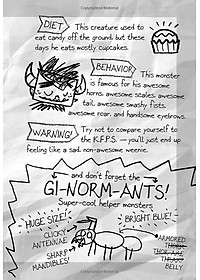 DIET This creature used to
eat candy off the ground. but these
days he eats mostly cupcakes.
BEHAVIOR This monster
is famous for his awesome
horns, awesome scales, awesome
tail, awesome smashy fists,
awesome roar, and handsome eyebrows.
WARNING! Try not to compare yourself to
the K.F.P.S. — you'll just end up
feeling like a sad, non-awesome weenie.
and don't forget the
GI-NORM-ANTS!
Super-cool helper monsters
HUGE SIZE!
BRIGHT BLUE!
CLICKY
ANTENNAE
SHARP
MANDIBLES!
ARMORED
BELLY